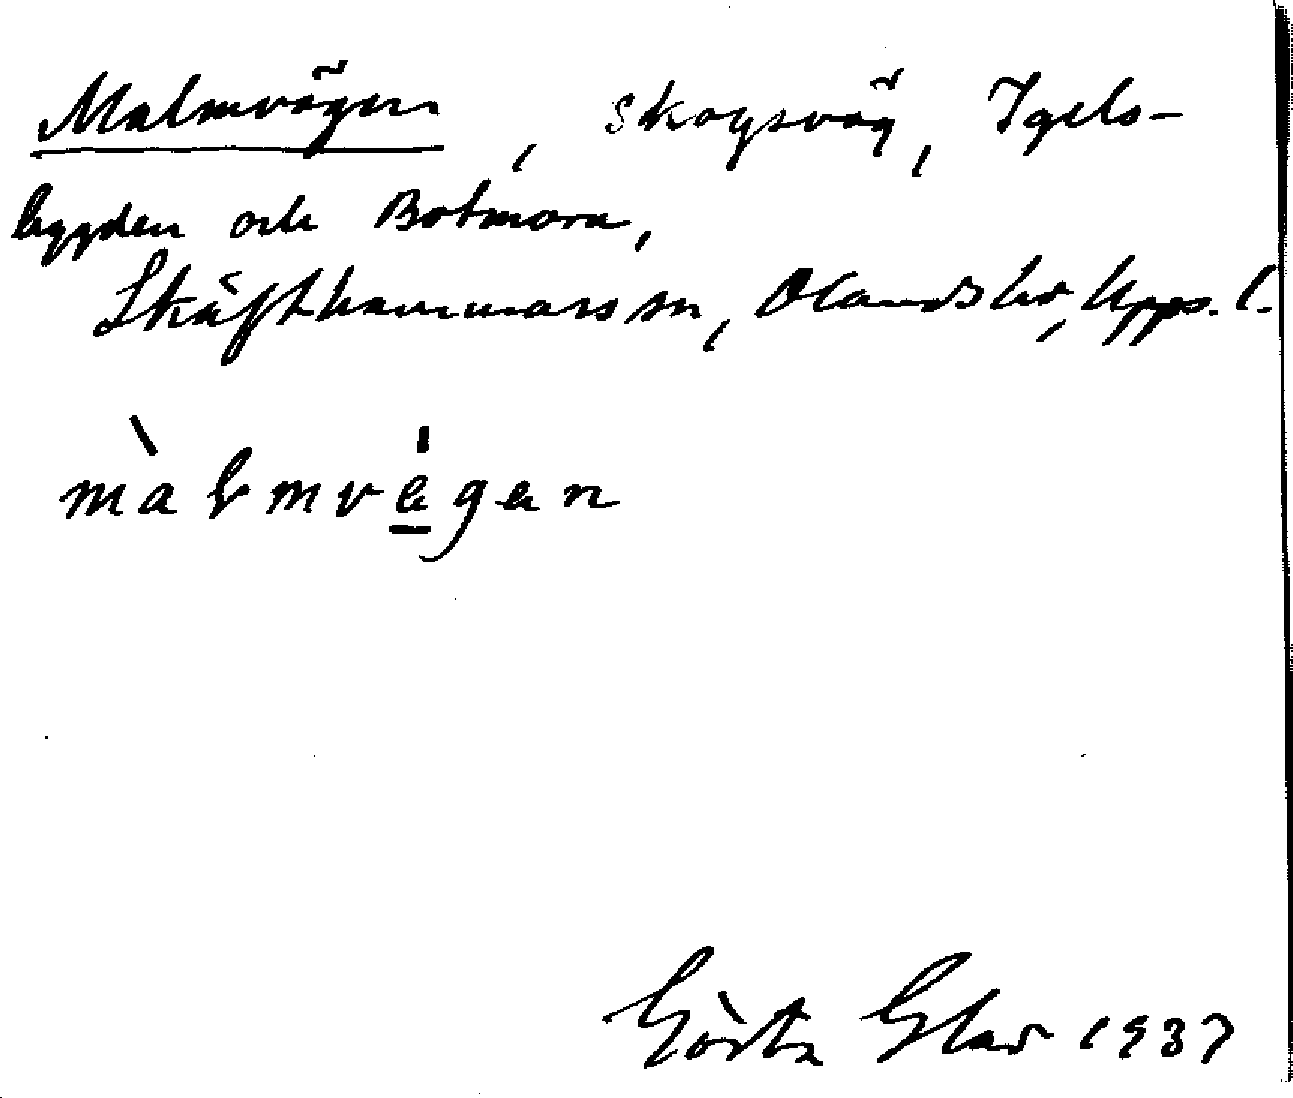 Malmvägen, skogsväg, Igels-
bygden och Botmora,
Skäfthammars sn, Olands hd, Upps. l.
màlmvę́gan
Gösta Glad 1937